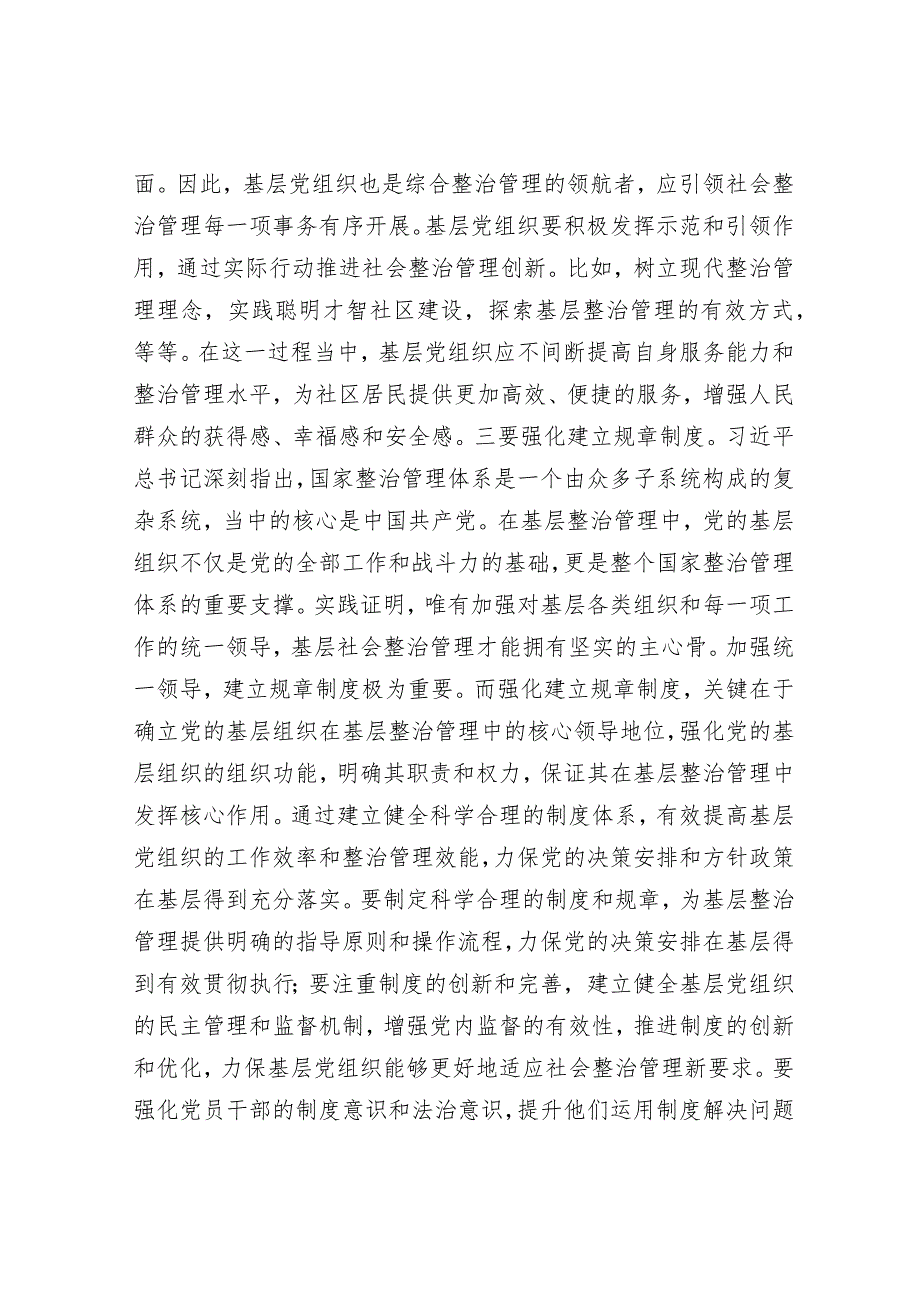 面。因此，基层党组织也是综合整治管理的领航者，应引领社会整
治管理每一项事务有序开展。基层党组织要积极发挥示范和引领作
用，通过实际行动推进社会整治管理创新。比如，树立现代整治管
理理念，实践聪明才智社区建设，探索基层整治管理的有效方式，
等等。在这一过程当中，基层党组织应不间断提高自身服务能力和
整治管理水平，为社区居民提供更加高效、便捷的服务，增强人民
群众的获得感、幸福感和安全感。三要强化建立规章制度。习近平
总书记深刻指出，国家整治管理体系是一个由众多子系统构成的复
杂系统，当中的核心是中国共产党。在基层整治管理中，党的基层
组织不仅是党的全部工作和战斗力的基础，更是整个国家整治管理
体系的重要支撑。实践证明，唯有加强对基层各类组织和每一项工
作的统一领导，基层社会整治管理才能拥有坚实的主心骨。加强统
一领导，建立规章制度极为重要。而强化建立规章制度，关键在于
确立党的基层组织在基层整治管理中的核心领导地位，强化党的基
层组织的组织功能，明确其职责和权力，保证其在基层整治管理中
发挥核心作用。通过建立健全科学合理的制度体系，有效提高基层
党组织的工作效率和整治管理效能，力保党的决策安排和方针政策
在基层得到充分落实。要制定科学合理的制度和规章，为基层整治
管理提供明确的指导原则和操作流程，力保党的决策安排在基层得
到有效贯彻执行；要注重制度的创新和完善，建立健全基层党组织
的民主管理和监督机制，增强党内监督的有效性，推进制度的创新
和优化，力保基层党组织能够更好地适应社会整治管理新要求。要
强化党员干部的制度意识和法治意识，提升他们运用制度解决问题